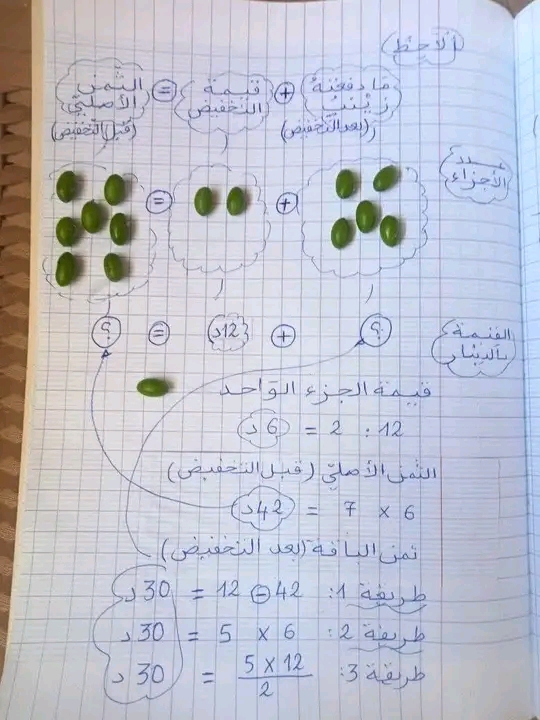 ألاحظ
ما دفعته زينب (بعد التخفيض) + قيمة التخفيض = الثمن الأصلي (قبل التخفيض)
عدد الأجزاء
+ =
القيمة بالدينار
؟ + 12د = ؟
قيمة الجزء الواحد
12 : 2 = 6د
الثمن الأصليّ (قبل التخفيض)
6 × 7 = 42د
ثمن الباقة (بعد التخفيض)
طريقة 1: 42 - 12 = 30 د
طريقة 2: 6 × 5 = 30 د
طريقة 3: 5 × 12 / 2 = 30 د